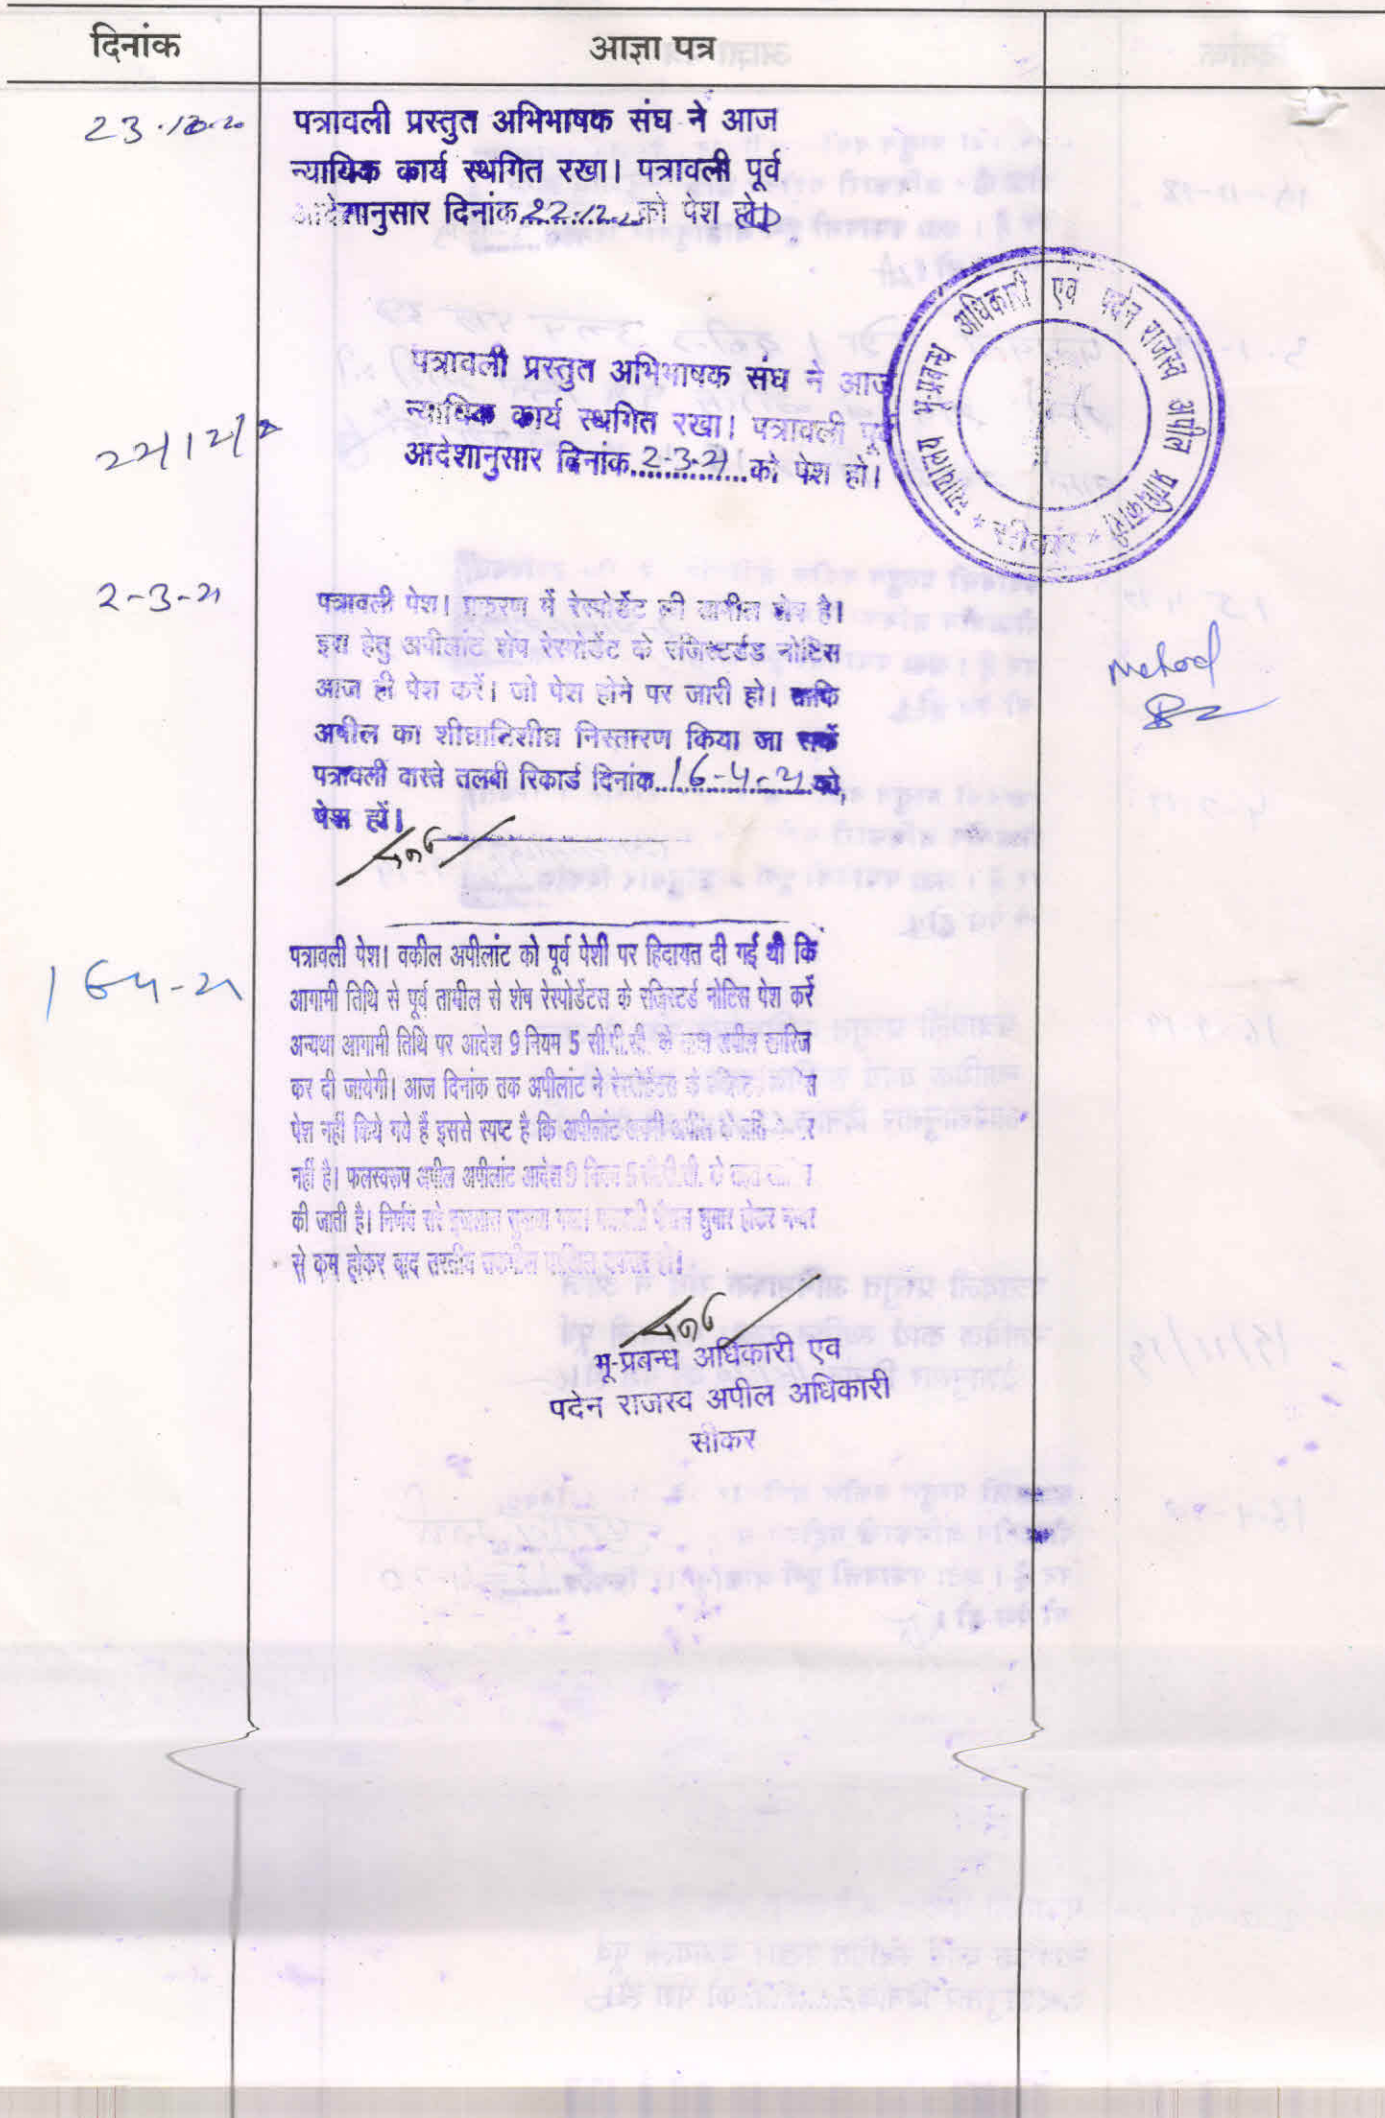 दिनांक
आज्ञा पत्र
23-10-20
पत्रावली प्रस्तुत अभिभाषक संघ ने आज
न्यायिक कार्य स्थगित रखा। पत्रावली पूर्व
आदेशानुसार दिनांक 22.12.20 को पेश हो।
22/12/20
पत्रावली प्रस्तुत अभिभाषक संघ ने आज
न्यायिक कार्य स्थगित रखा। पत्रावली पूर्व
आदेशानुसार दिनांक 2-3-21 को पेश हो।
न्यायालय भू-प्रबन्ध अधिकारी एवं पदेन राजस्व अपील प्राधिकारी
* सीकर *
2-3-21
पत्रावली पेश। प्रकरण में रेस्पोडेंट की तामील शेष है।
इस हेतु अपीलांट शेष रेस्पोडेंट के रजिस्टर्डड नोटिस
आज ही पेश करें। जो पेश होने पर जारी हो। ताकि
अपील का शीघ्रातिशीघ्र निस्तारण किया जा सकें
पत्रावली वास्ते तलबी रिकार्ड दिनांक 16-4-21 को,
पेश हों।
16-4-21
पत्रावली पेश। वकील अपीलांट को पूर्व पेशी पर हिदायत दी गई थी कि
आगामी तिथि से पूर्व तामील से शेष रेस्पोडेंटस के रजिस्टर्ड नोटिस पेश करें
अन्यथा आगामी तिथि पर आदेश 9 नियम 5 सी.पी.सी. के तहत अपील खारिज
कर दी जायेगी। आज दिनांक तक अपीलांट ने रेस्पोडेंटस के
पेश नहीं किये गये हैं इससे स्पष्ट है कि अपीलांट अपनी अपील के प्रति
नहीं है। फलस्वरूप अपील अपीलांट आदेश 9 नियम 5 सी.पी.सी. के तहत
की जाती है। निर्णय सरे इजलास सुनाया गया। पत्रावली फैसल शुमार होकर नम्बर
से कम होकर बाद तरतीब तकमील दाखिल दफ्तर हो।
भू-प्रबन्ध अधिकारी एवं
पदेन राजस्व अपील अधिकारी
सीकर